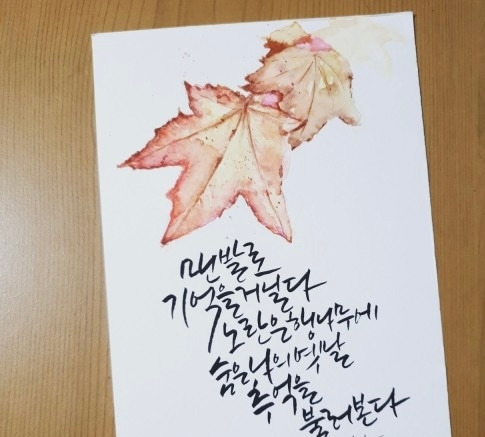 맨발로
기억을거닐다
노란은행나무에
숨은나의옛날
추억을
불러본다